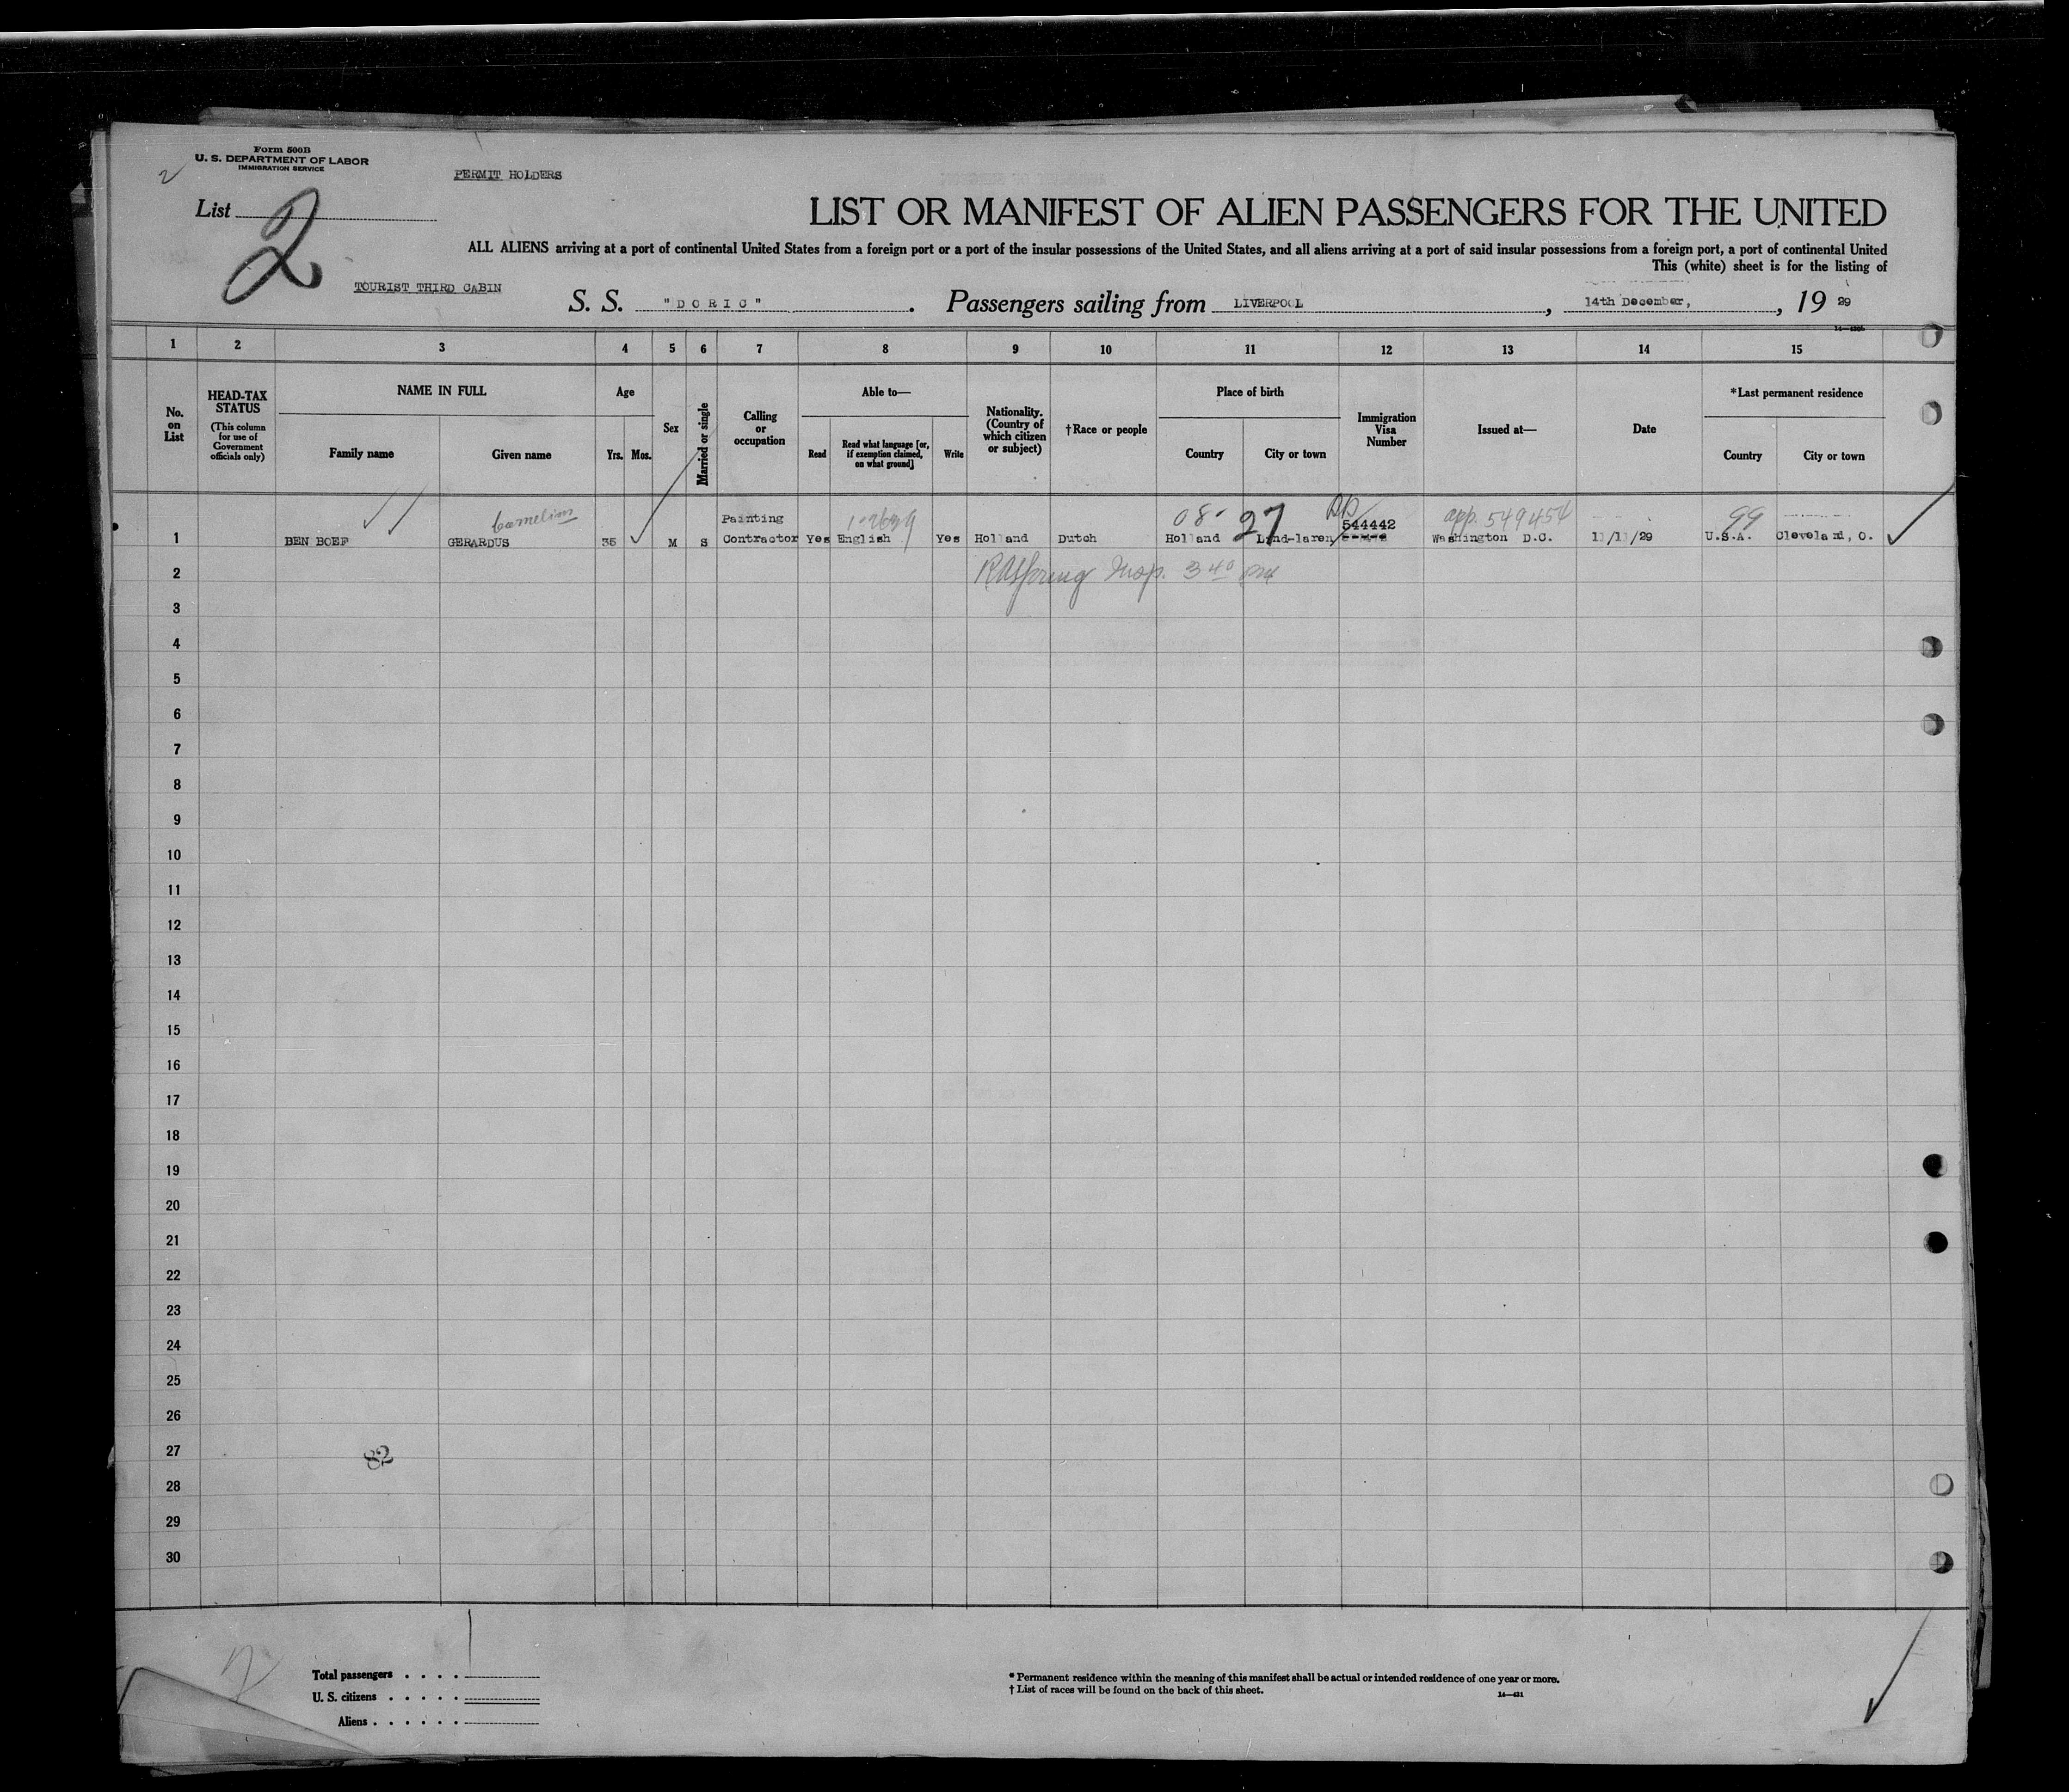 Form 500B
U. S. DEPARTMENT OF LABOR
IMMIGRATION SERVICE
2
PERMIT HOLDERS
List
2
LIST OR MANIFEST OF ALIEN PASSENGERS FOR THE UNITED
ALL ALIENS arriving at a port of continental United States from a foreign port or a port of the insular possessions of the United States, and all aliens arriving at a port of said insular possessions from a foreign port, a port of continental United
This (white) sheet is for the listing of
TOURIST THIRD CABIN
S. S. "DORIC". Passengers sailing from LIVERPOOL, 14th December, , 19 29
1 2 3 4 5 6 7 8 9 10 11 12 13 14 15
No. on List
HEAD-TAX STATUS
(This column for use of Government officials only)
NAME IN FULL
Family name Given name
Age
Yrs. Mos.
Sex
Married or single
Calling or occupation
Able to—
Read
Read what language [or, if exemption claimed, on what ground]
Write
Nationality. (Country of which citizen or subject)
†Race or people
Place of birth
Country City or town
Immigration Visa Number
Issued at—
Date
*Last permanent residence
Country City or town
Painting 08- 27 544442 app. 549454 99
1 BEN BOEF GERARDUS 35 M S Contractor Yes English Yes Holland Dutch Holland Washington D.C. 11/11/29 U.S.A. Cleveland, O.
2
3
4
5
6
7
8
9
10
11
12
13
14
15
16
17
18
19
20
21
22
23
24
25
26
27
82
28
29
30
Total passengers . . . .
U. S. citizens . . . . .
Aliens . . . . . .
* Permanent residence within the meaning of this manifest shall be actual or intended residence of one year or more.
† List of races will be found on the back of this sheet.